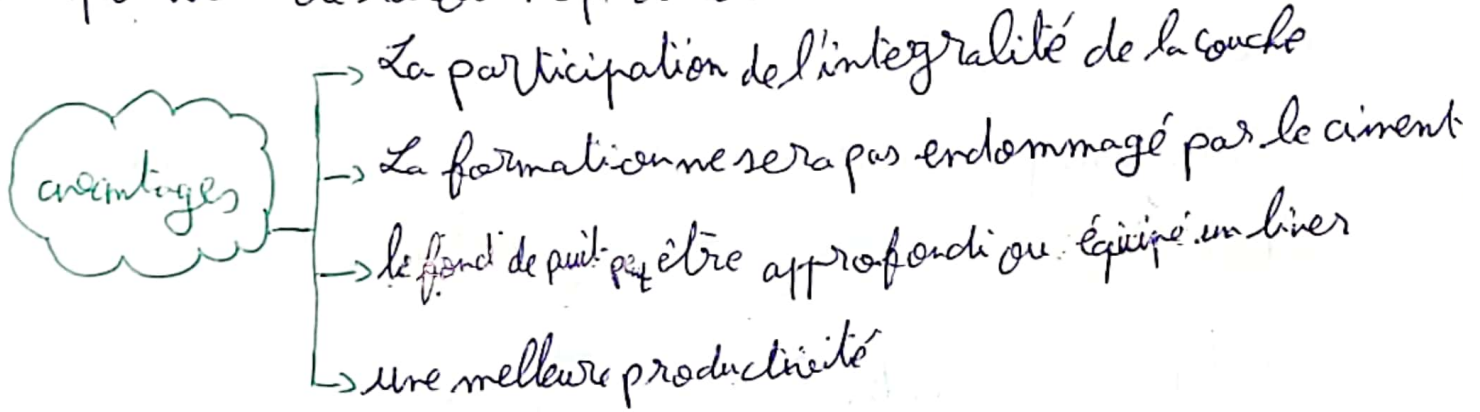 La participation de l'integralité de la couche
La formation ne sera pas endommagé par le ciment
avantages
le fond de puit peut être approfondi ou équipé un liner
une melleure productivité